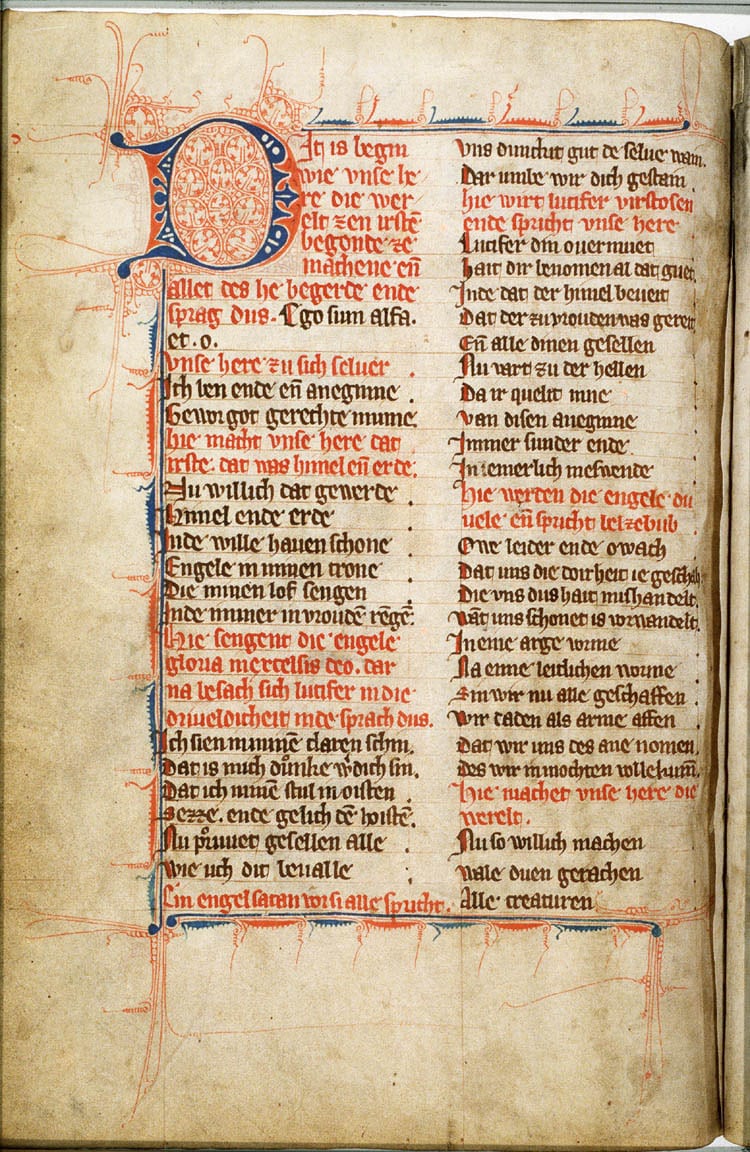 Dit is begin
wie vnse he
re die wer
elt zen irstē
begonte ze
machene eñ
allet des he begerde ende
sprag dus. Ego sum alfa.
et. o.
vnse here zu sich seluer
Ich ben ende eñ aneginne
Geworgot gerechte minne
hie macht vnse here dat
irste. dat was himel eñ erde.
Nu willich dat gewerde
Himel ende erde
Inde wille hauen schone
Engele in minen trone
Die minen lof sengen
Inde immer in vrouden rēgē.
Hie sengent die engele
gloria in excelsis deo. dar
na besach sich lucifer in die
driueldicheit inde sprach dus.
Ich sien in minē claren schin.
Dat is mich dūnke wdich sin.
Dat ich minē stul in oisten
Sezze. ende gelich dē hoistē.
Nu pruuet gesellen alle
wie uch dit beualle
Ein engel satan vor si alle spricht.
vns dunckit gut de selue wain.
Dar umbe wir dich gestain
hie wirt lucifer virstosen
ende spricht vnse here
Lucifer din ouermuet
Hait dir benomen al dat guet.
Inde dat der himel beueit
Dat der zu vrouden was gereit
Eñ alle dinen gesellen
Nu vart zu der hellen
Da ir quelit inne
van disen aneginne
Immer sunder ende
In iemerlich meswende
Hie werden die engele du
uele eñ spricht belzebub
Owe leider ende owach
Dat uns die doirheit ie geschah
Die vns dus hait mishandelt.
wāt uns schonet is vorwandelt.
In eine arge vorme
Na eime leitlichen worme
Sin wir nu alle geschaffen
wir daden als arme affen
Dat wir uns des ane nomen.
des wir in mochten vollekumē.
Hie machet vnse here die
werelt.
Nu so willich machen
wale duen gerachen
Alle creaturen